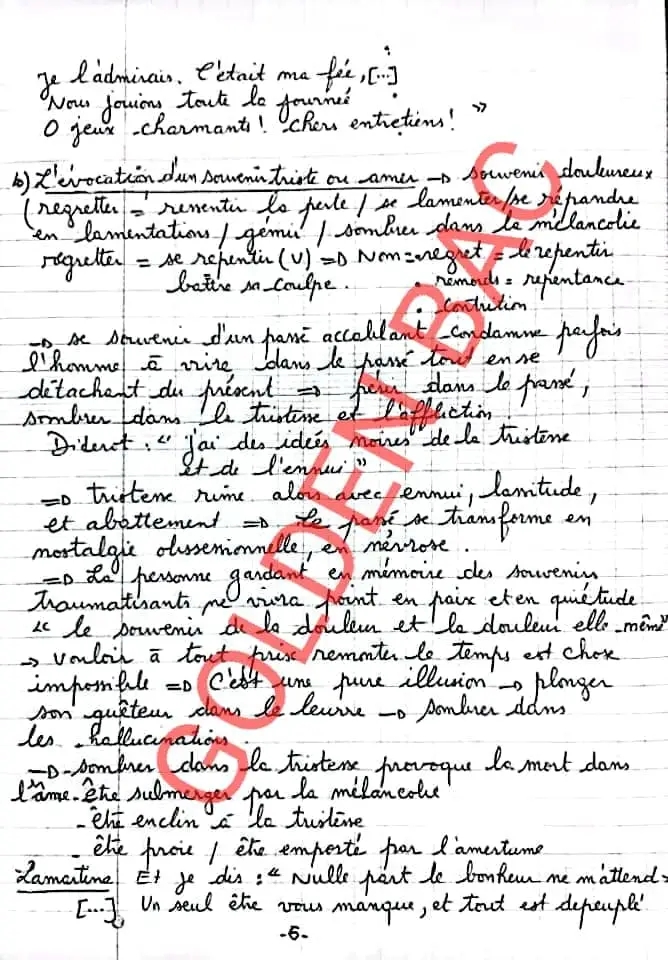 Je l'admirais. C'était ma fée, [...]
Nous jouions toute la journée
O jeux charmants! chers entretiens! »
b) L'évocation d'un souvenir triste ou amer → souvenir douloureux
(regretter = ressentir la perte / se lamenter / se répandre
en lamentations / gémir / sombrer dans la mélancolie
regretter = se repentir (V) => Nom = regret = le repentir
battre sa coulpe. • remords = repentance
• contrition
→ se souvenir d'un passé accablant condamne parfois
l'homme à vivre dans le passé tout en se
détachant du présent => dans le passé,
sombrer dans la tristesse et l'affliction
Diderot : " j'ai des idées noires de la tristesse
et de l'ennui "
=> tristesse rime alors avec ennui, lassitude,
et abattement => Le passé se transforme en
nostalgie obsessionnelle, en névrose.
=> La personne gardant en mémoire des souvenirs
traumatisants ne vivra point en paix et en quiétude
" le souvenir de la douleur et la douleur elle-même"
→ vouloir à tout prix remonter le temps est chose
impossible => C'est une pure illusion → plonger
son quêteur dans le leurre → sombrer dans
les hallucinations.
→ sombrer dans la tristesse provoque la mort dans
l'âme - être submerger par la mélancolie
- être enclin à la tristesse
- être proie / être emporté par l'amertume
Lamartine Et je dis : " Nulle part le bonheur ne m'attend =
[...] Un seul être vous manque, et tout est depeuplé
-5-
GOLDEN BAC